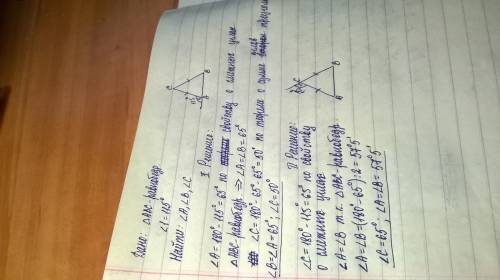 Дано: △ABC-равнобедр.
∠1=115°
Найти: ∠A, ∠B, ∠C
C
B
115°
I Решение:
∠A=180°-115°=65° по свойству о смежных углах
△ABC-равнобедр. ⇒ ∠A=∠B=65°
∠C=180°-65°-65°=50° по теореме о сумме углов
∠B=∠A=65°; ∠C=50°
C
B
A
II Решение:
∠C=180°-115°=65° по свойству
о смежных углах
∠A=∠B т.к. △ABC-равнобедр.
∠A=∠B=(180°-65°):2=57°5'
∠C=65°; ∠A=∠B=57°5'